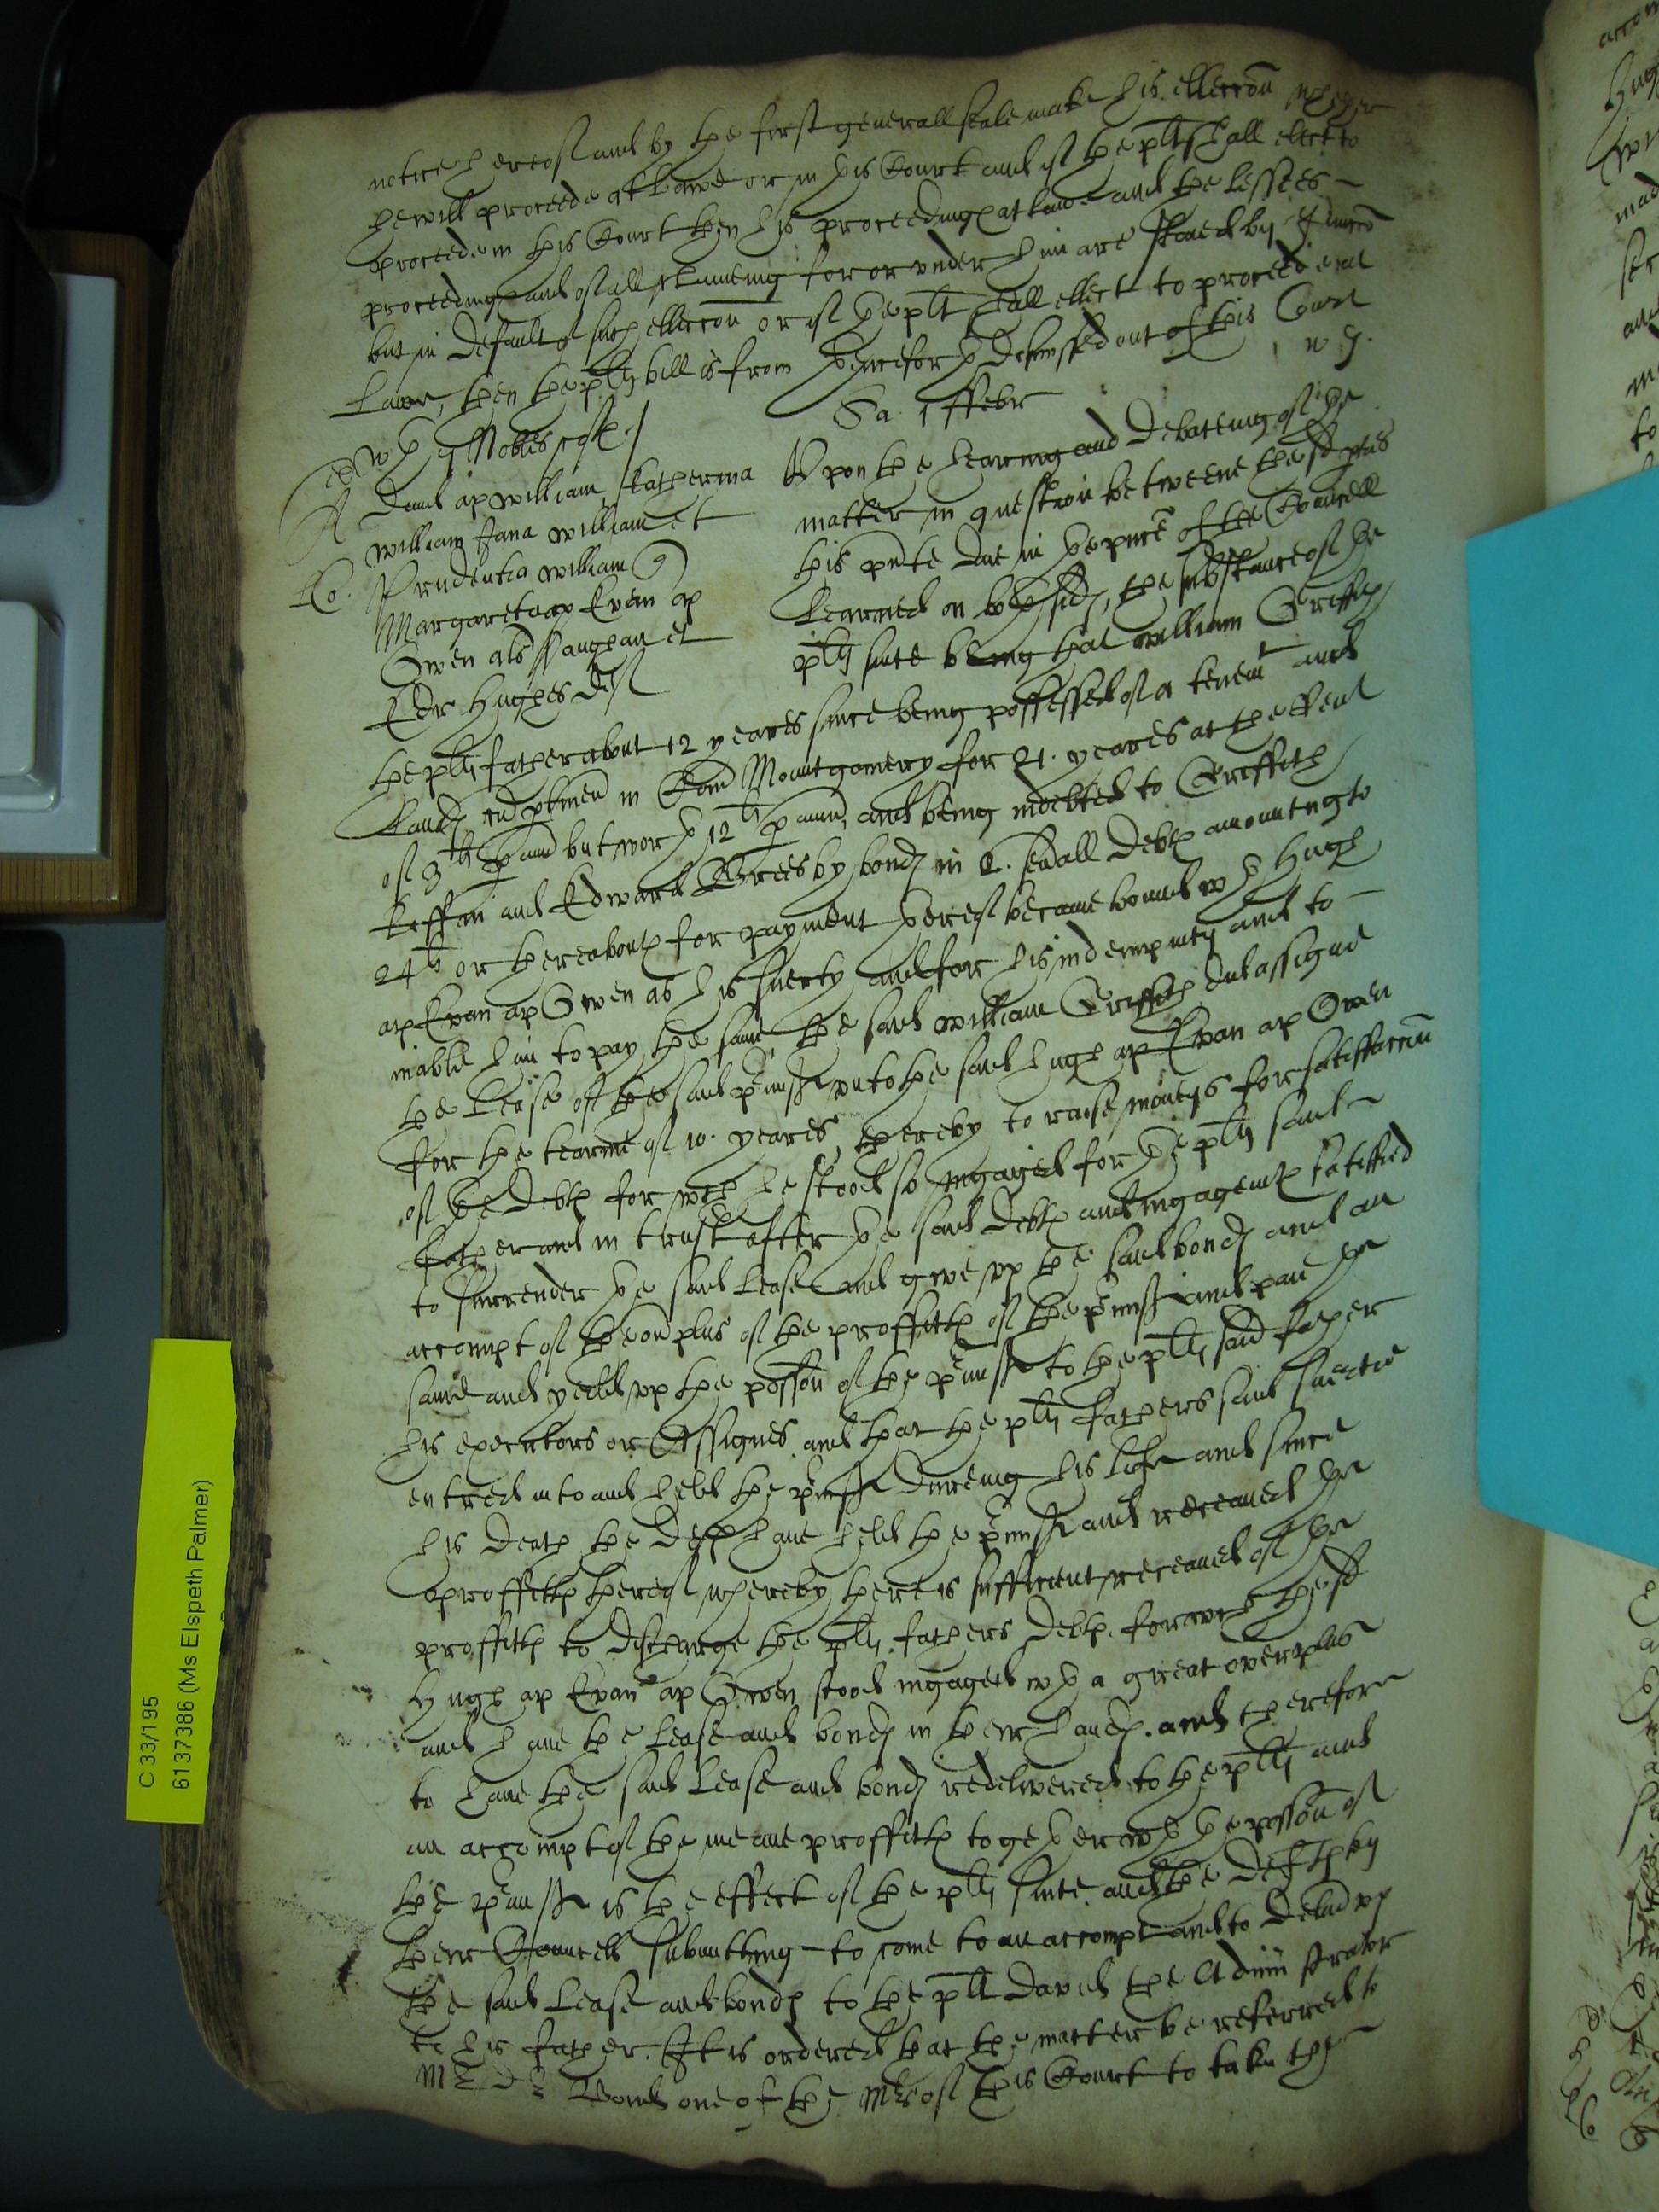 notice hereof and by the first generall seale make his elleccōn whether
he will proceede at Lawe or in this Court and if the plt shall elect to
proceede in this Court then his proceedingꝭ at lawe and the lessees
proceedingꝭ and of all claimeing for or vnder him are staied by Iniuncc̃
but in default of such elleccōn or if the plt shall ellect to proceede att
Lawe, then the pltꝭ bill is from thenceforth dismissed out of this Court
Sa. 1 ffebr
Dauid ap william, Katherina
william Jana william et
Prudentia william
Margareta Evan ap
Owen als Vaughan et
Edr Hughes def
Vpon the hearing and debateing of the
matter in question betweene the sd pties
this pnte daie in the pnce of the Councell
Learned on both sides, the substance of the
pltꝭ suite being that william Griffith
the pltꝭ father about 12 yeares since being possessed of a tenemt and
Landꝭ in Com Mountgomery for 21 yeares at the rent
of 3li p ann but worth 12li p ann, and being indebted to Griffith
and Edward by bondꝭ in seuall debtꝭ amounting to
24li or thereaboutꝭ for payment thereof became bound wth Hugh
ap Evan ap Owen as his suerty and for his indempnity and to
inable him to pay the same, the said william Griffith did assigne
the Lease of the said pmisses vnto the said Hugh ap Evan ap Owen
for the tearme of 10 yeares, thereby to raise moneys for satisfaccōn
of the debtꝭ for wch he stood so ingaged for the pltꝭ said
father and in trust after the said debtꝭ and ingagemtꝭ satisfied
to surrender the said Lease and give vp the said bondꝭ and an
accompt of the ouplus of the proffittꝭ of the pmisses and paie the
same and yeild vp the possōn of the pmisses to the pltꝭ said father
his executors or Assignes and that the pltꝭ fathers said suertie
entred into and held the pmisses dureing his life and since
his death the deftꝭ haue held the pmisses and receaued the
proffittꝭ thereof whereby there is sufficient receaued of the
proffittꝭ to discharge the pltꝭ fathers debtꝭ for wch the sd
Hugh ap Evan ap Owen stood ingaged wth a great overplus
and haue the lease and bondꝭ in their handꝭ. and therefore
to haue the said Lease and bondꝭ redelivered to the pltꝭ and
an accompt of the meane proffittꝭ together wth the possōn of
the pmisses is the effect of the pltꝭ suite, and the deftꝭ by
their Councell submitting to come to an accompt and to deliu vp
the said Lease and bondꝭ to the plt Dauid the Administrator
to his father. It is ordered that the matter be referred to
one of the Mrs of this Court to take the
C 33/195
6137386 (Ms Elspeth Palmer)